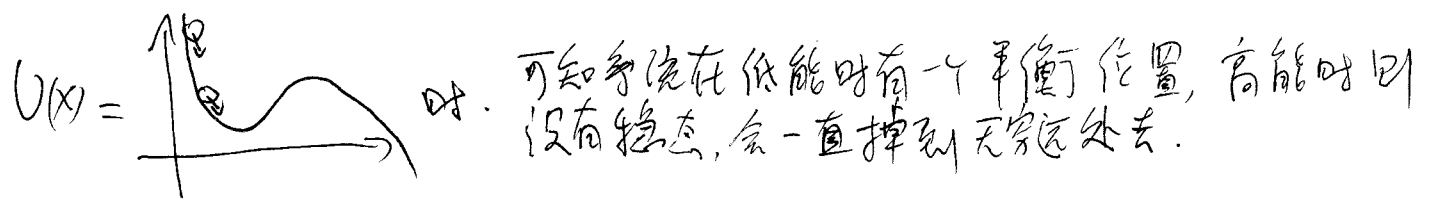 U(x) = 时. 可知系统在低能时有一个平衡位置, 高能时则
没有稳态, 会一直掉到无穷远处去.